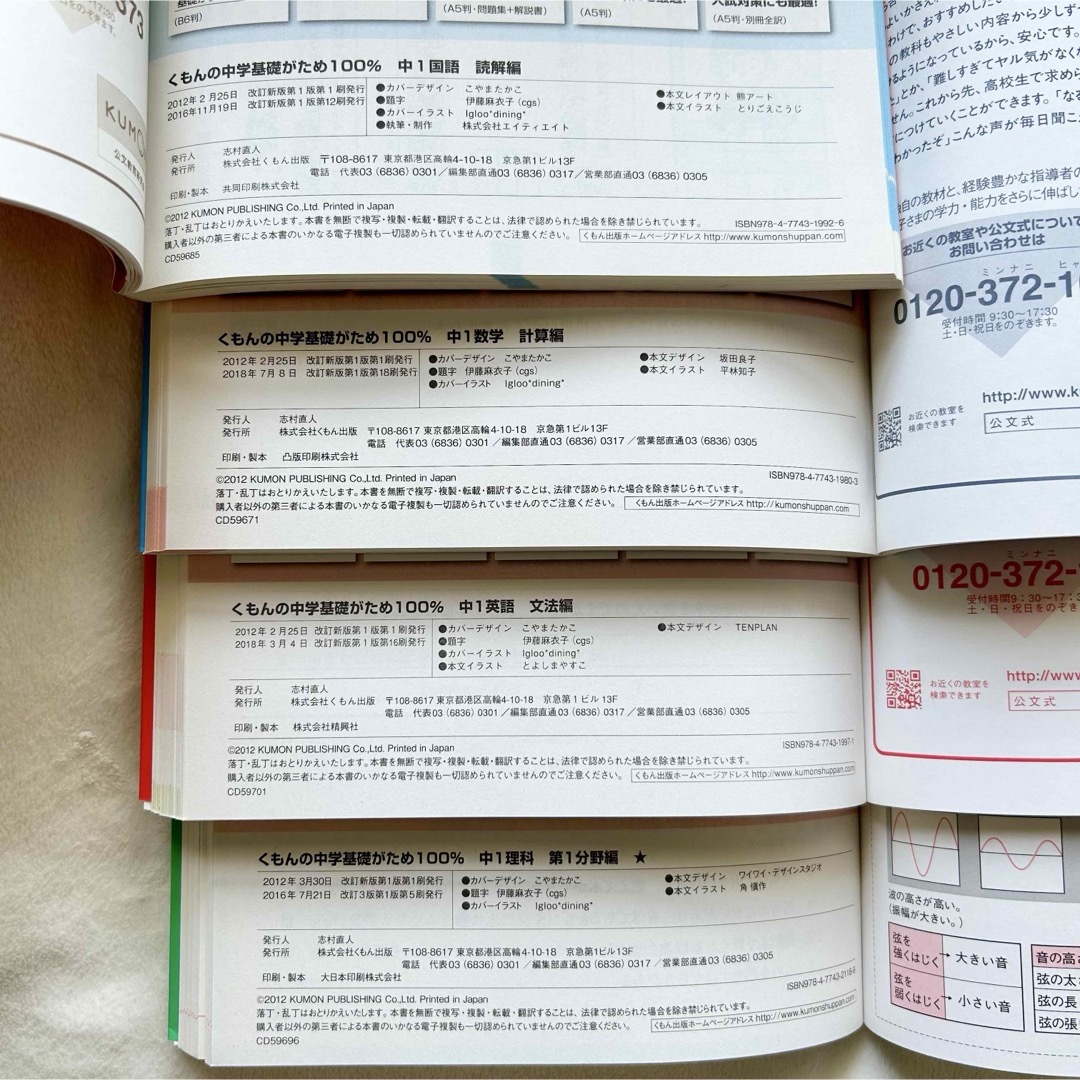 (B6判)
(A5判・問題集+解説書)
(A5判)
入試対策にも最適!
(A5判・別冊全訳)
くもんの中学基礎がため100% 中1国語 読解編
2012年2月25日 改訂新版第1版第1刷発行
2016年11月19日 改訂新版第1版第12刷発行
●カバーデザイン こやまたかこ
●題字 伊藤麻衣子(cgs)
●カバーイラスト Igloo*dining*
●執筆・制作 株式会社エイティエイト
●本文レイアウト 熊アート
●本文イラスト とりごえこうじ
発行人 志村直人
発行所 株式会社くもん出版 〒108-8617 東京都港区高輪4-10-18 京急第1ビル13F
電話 代表03(6836)0301/編集部直通03(6836)0317/営業部直通03(6836)0305
印刷・製本 共同印刷株式会社
©2012 KUMON PUBLISHING Co.,Ltd. Printed in Japan
ISBN978-4-7743-1992-6
落丁・乱丁はおとりかえいたします。本書を無断で複写・複製・転載・翻訳することは、法律で認められた場合を除き禁じられています。
購入者以外の第三者による本書のいかなる電子複製も一切認められていませんのでご注意ください。 くもん出版ホームページアドレス http://www.kumonshuppan.com/
CD59685
くもんの中学基礎がため100% 中1数学 計算編
2012年2月25日 改訂新版第1版第1刷発行
2018年7月8日 改訂新版第1版第18刷発行
●カバーデザイン こやまたかこ
●題字 伊藤麻衣子(cgs)
●カバーイラスト Igloo*dining*
●本文デザイン 坂田良子
●本文イラスト 平林知子
発行人 志村直人
発行所 株式会社くもん出版 〒108-8617 東京都港区高輪4-10-18 京急第1ビル13F
電話 代表03(6836)0301/編集部直通03(6836)0317/営業部直通03(6836)0305
印刷・製本 凸版印刷株式会社
©2012 KUMON PUBLISHING Co.,Ltd. Printed in Japan
ISBN978-4-7743-1980-3
落丁・乱丁はおとりかえいたします。本書を無断で複写・複製・転載・翻訳することは、法律で認められた場合を除き禁じられています。
購入者以外の第三者による本書のいかなる電子複製も一切認められていませんのでご注意ください。 くもん出版ホームページアドレス http://kumonshuppan.com/
CD59671
くもんの中学基礎がため100% 中1英語 文法編
2012年2月25日 改訂新版第1版第1刷発行
2018年3月4日 改訂新版第1版第16刷発行
●カバーデザイン こやまたかこ
●題字 伊藤麻衣子(cgs)
●カバーイラスト Igloo*dining*
●本文イラスト とよしまやすこ
●本文デザイン TENPLAN
発行人 志村直人
発行所 株式会社くもん出版 〒108-8617 東京都港区高輪4-10-18 京急第1ビル13F
電話 代表03(6836)0301/編集部直通03(6836)0317/営業部直通03(6836)0305
印刷・製本 株式会社精興社
©2012 KUMON PUBLISHING Co.,Ltd. Printed in Japan
ISBN978-4-7743-1997-1
落丁・乱丁はおとりかえいたします。本書を無断で複写・複製・転載・翻訳することは、法律で認められた場合を除き禁じられています。
購入者以外の第三者による本書のいかなる電子複製も一切認められていませんのでご注意ください。 くもん出版ホームページアドレス http://www.kumonshuppan.com/
CD59701
くもんの中学基礎がため100% 中1理科 第1分野編 ★
2012年3月30日 改訂新版第1版第1刷発行
2016年7月21日 改訂3版第1版第5刷発行
●カバーデザイン こやまたかこ
●題字 伊藤麻衣子(cgs)
●カバーイラスト Igloo*dining*
●本文デザイン ワイワイ・デザインスタジオ
●本文イラスト 角愼作
発行人 志村直人
発行所 株式会社くもん出版 〒108-8617 東京都港区高輪4-10-18 京急第1ビル13F
電話 代表03(6836)0301/編集部直通03(6836)0317/営業部直通03(6836)0305
印刷・製本 大日本印刷株式会社
©2012 KUMON PUBLISHING Co.,Ltd. Printed in Japan
ISBN978-4-7743-2116-9
落丁・乱丁はおとりかえいたします。本書を無断で複写・複製・転載・翻訳することは、法律で認められた場合を除き禁じられています。
購入者以外の第三者による本書のいかなる電子複製も一切認められていませんのでご注意ください。 くもん出版ホームページアドレス http://www.kumonshuppan.com/
CD59696
373
をのぞきます。
KUMO
わけで、おすすめしたい
の教科もやさしい内容から少しず
るようになっているから、安心です。
とか、「難しすぎてヤル気がなく
せん。これから先、高校生で求めら
につけていくことができます。「な
わかったぞ」こんな声が毎日聞こ
自の教材と、経験豊かな指導者の
子さまの学力・能力をさらに伸ばし
お近くの教室や公文式について
お問い合わせは
ミンナニ
0120-372-1
受付時間 9:30〜17:30
土・日・祝日をのぞきます。
http://www.k
お近くの教室を
検索できます
公文式
ミンナニ
0120-372-
受付時間9:30〜17:3
土・日・祝日をのぞき
http://www
お近くの教室を
検索できます
公文式
波の高さが高い。
(振幅が大きい。)
弦を
強くはじく → 大きい音
弦を
弱くはじく → 小さい音
音の高さ
弦の太さ
弦の長
弦の張